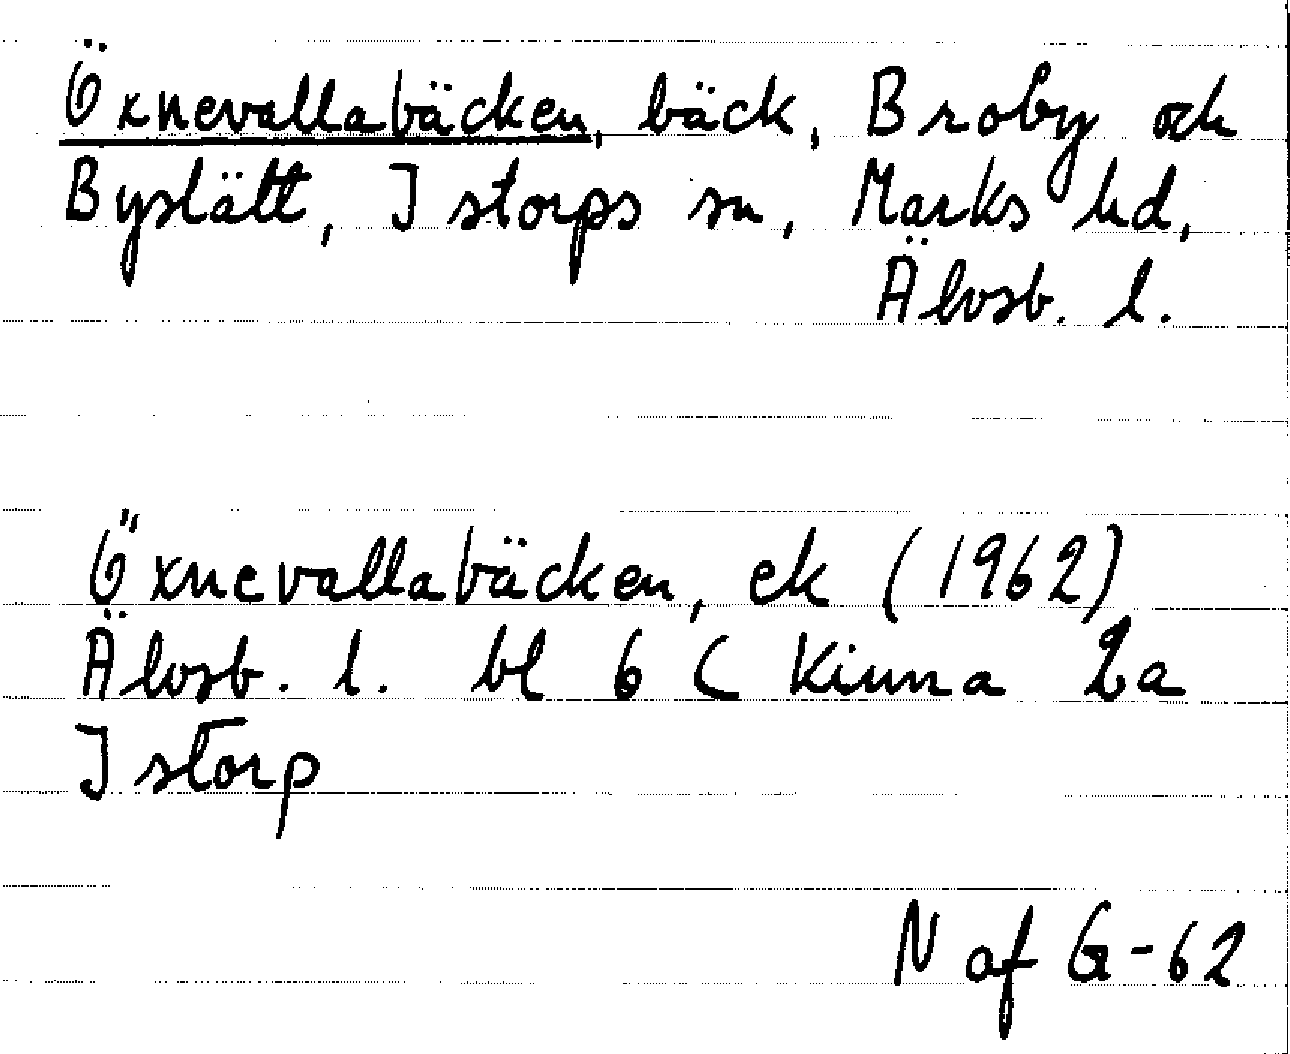 Öxnevallabäcken, bäck, Broby och
Byslätt, Istorps sn, Marks hd,
Älvsb. l.
Öxnevallabäcken, ek (1962)
Älvsb. l. bl 6 C Kinna 2a
Istorp
N af G-62